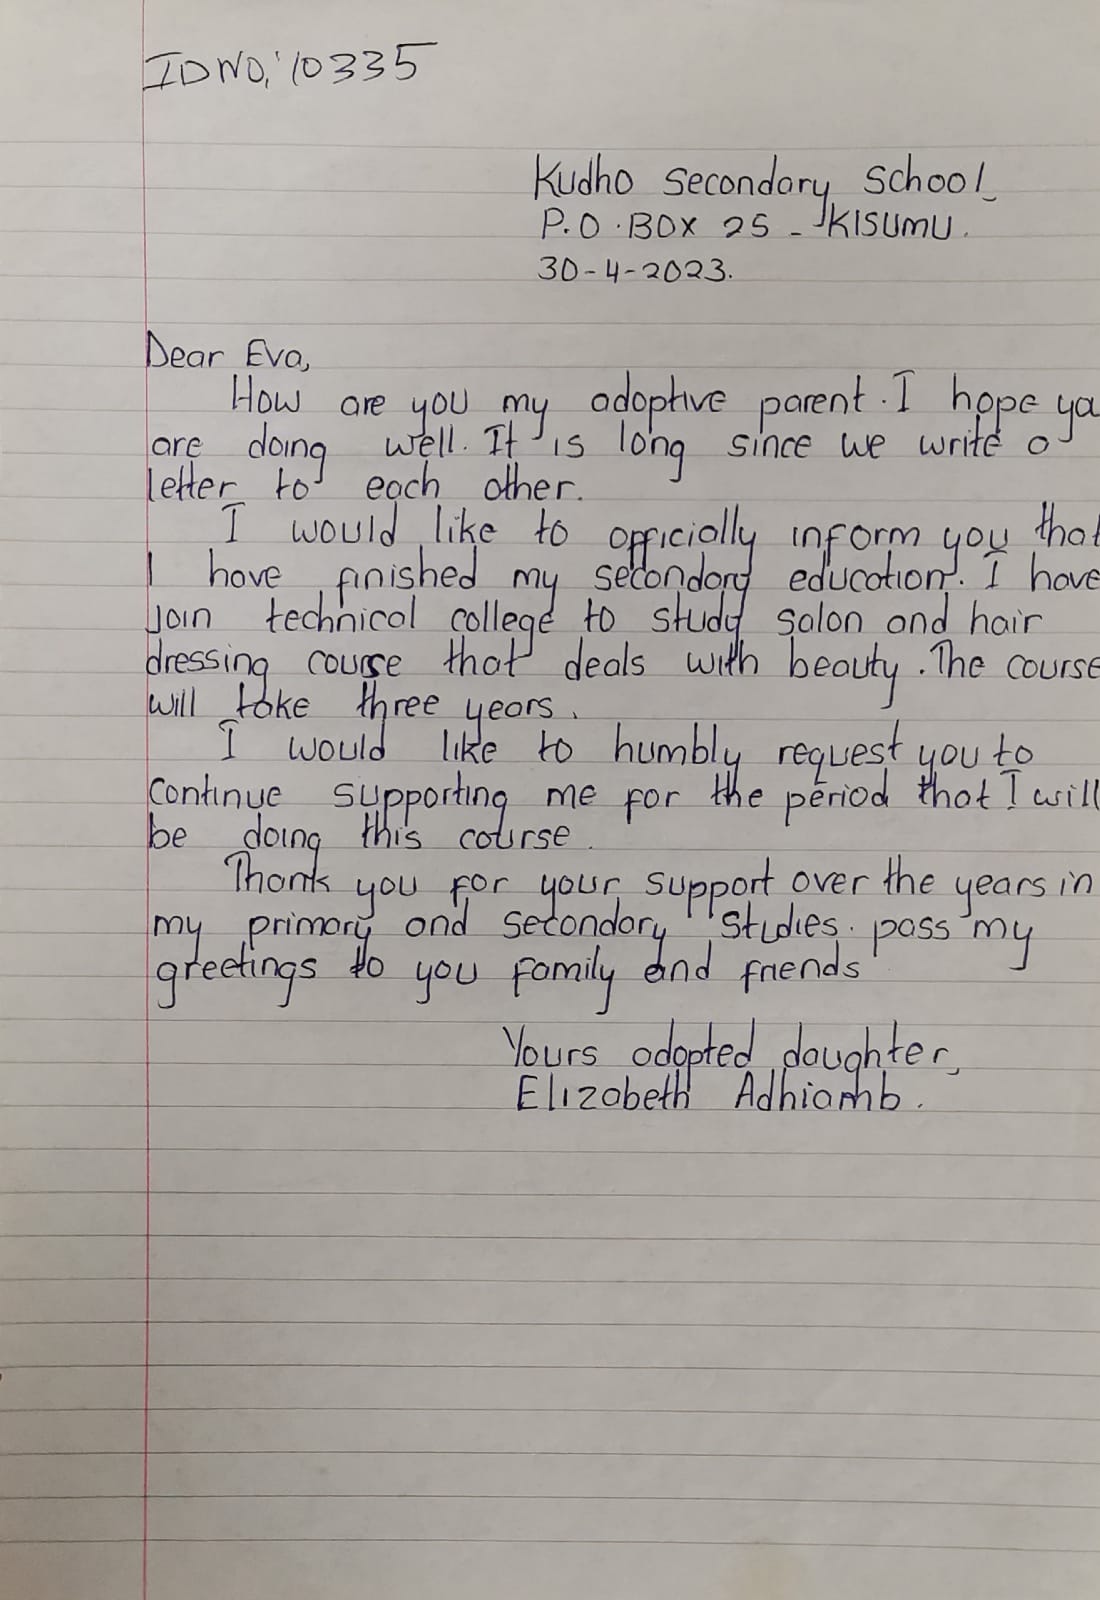 ID NO: 10335
Kudho Secondary School,
P.O. BOX 25 - KISUMU.
30-4-2023.
Dear Eva,
How are you my adoptive parent. I hope yo
are doing well. It is long since we write a
letter to each other.
I would like to officially inform you that
I have finished my secondary education. I have
join technical college to study salon and hair
dressing course that deals with beauty. The course
will take three years.
I would like to humbly request you to
continue supporting me for the period that I will
be doing this course.
Thank you for your support over the years in
my primary and secondary studies. pass my
greetings to you family and friends
Yours adopted daughter,
Elizabeth Adhiamb.